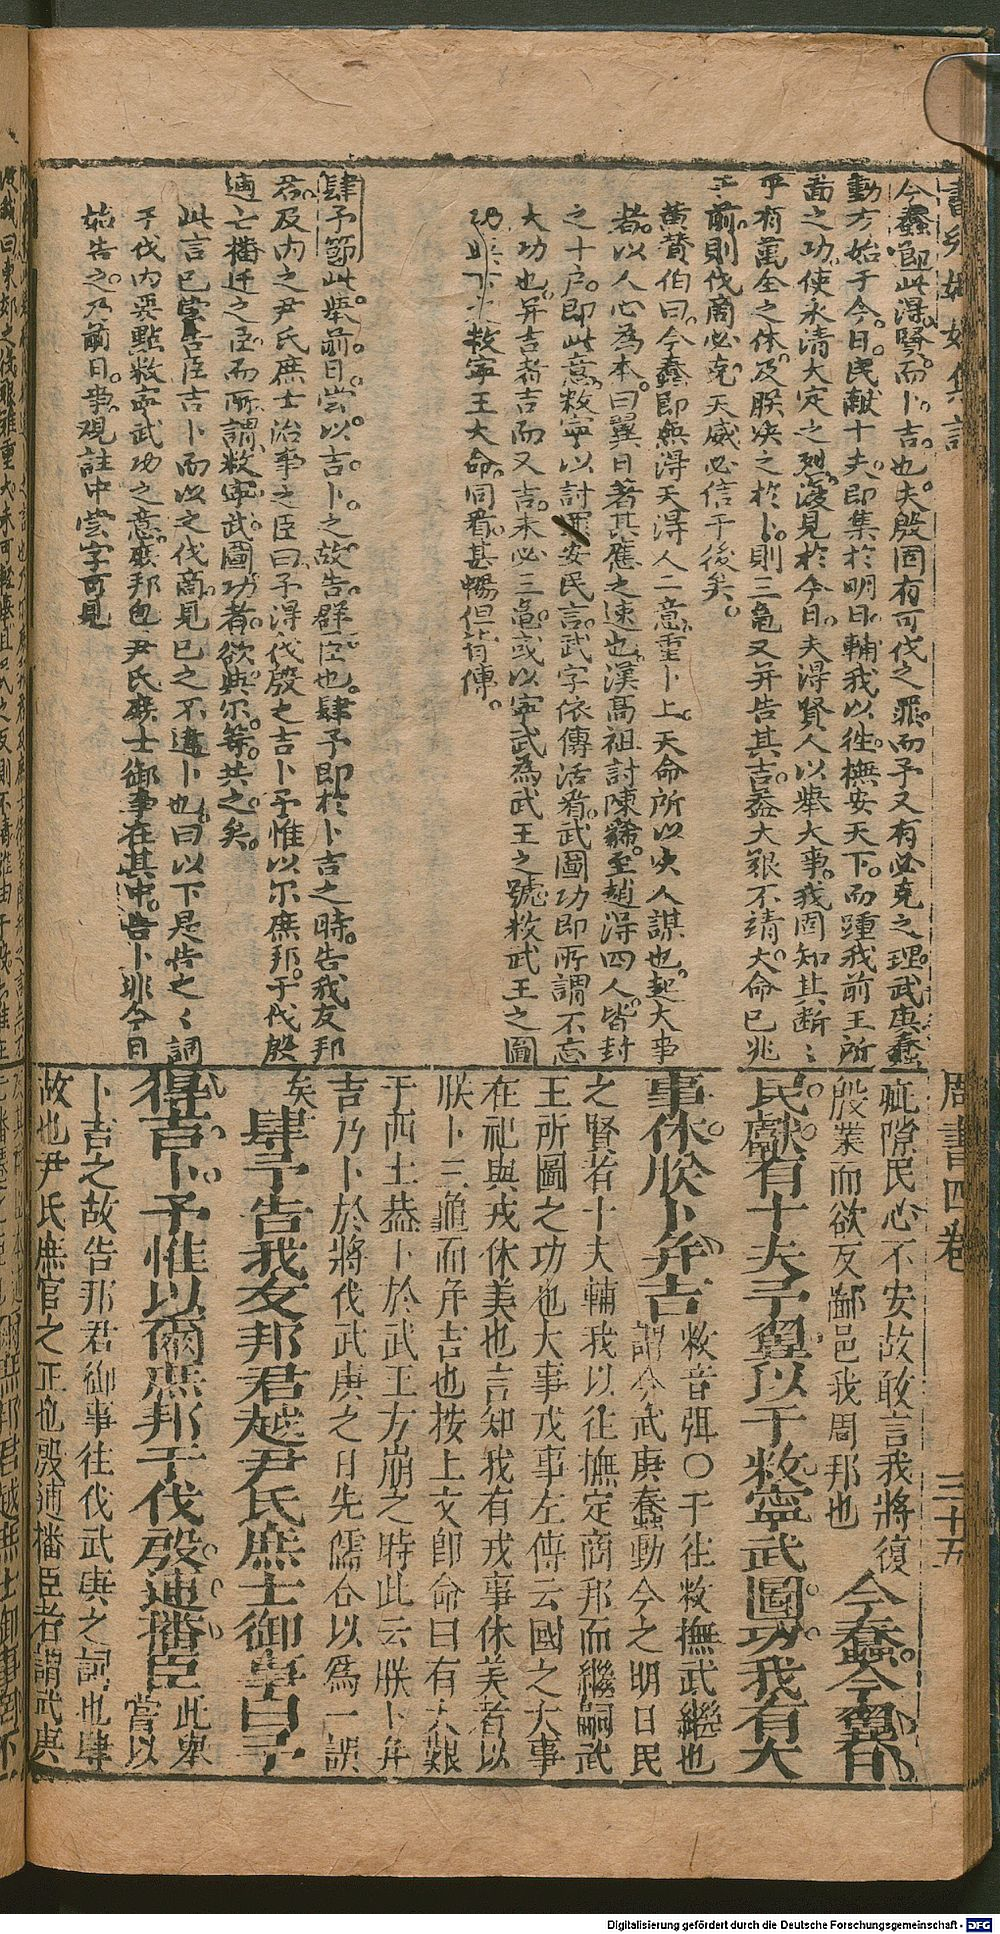 今蠢節此得賢而卜吉也夫殷固有可伐之罪而予又有必克之理武庚蠢
動方始于今日民献十夫即集於明日輔我以徃撫安天下而踵我前王所
啚之功使永清大定之烈復見於今日夫得賢人以舉大事我固知其断〻
乎有萬全之体及朕决之於卜則三龜又并告其吉葢大艱不靖大命已兆
于前則伐商必克天威必信于後矣
黃贊伯曰今蠢即無得天得人二意重卜上天命所以决人謀也起大事
者以人心為本曰翼日著其應之速也漢高祖討陳豨至趙得四人皆封
之十户即此意敉寧以討罪安民言武字依傳活看武圖功即所謂不忘
大功也并吉者吉而又吉未必三龜或以寧武為武王之號敉武王之圖
功與下文敉寧王大命同看甚暢但背傳
肆予節此舉前日嘗以吉卜之故告群臣也肆予即於卜吉之時告我友邦
君及内之尹氏庶士治事之臣曰予得伐殷之吉卜予惟以尔庶邦于伐殷
逋亡播迁之臣而所謂敉寧武圖功者欲與尔等共之矣
此言已嘗告臣吉卜而以之伐商見已之不違卜也曰以下是告之〻詞
于伐内要點敉寧武功之意庶邦包尹氏庶士御事在其中告卜非今日
始告之乃前日事現註中嘗字可見
周書四卷
三十五
疵隙民心不安故敢言我將復
殷業而欲反鄙邑我周邦也
今蠢今翼日
民獻有十夫予翼以于敉寧武圖功我有大
事休朕卜并吉
敉音弭〇于往敉撫武繼也
謂今武庚蠢動今之明日民
之賢者十夫輔我以往撫定商邦而繼嗣武
王所圖之功也大事戎事左傳云國之大事
在祀與戎休美也言知我有戎事休美者以
朕卜三龜而并吉也按上文即命曰有大艱
于西土葢卜於武王方崩之時此云朕卜并
吉乃卜於將伐武庚之日先儒合以爲一誤
矣
肆予告我友邦君越尹氏庶士御事曰予
得吉卜予惟以爾庶邦于伐殷逋播臣
此舉
嘗以
卜吉之故告邦君御事往伐武庚之詞也肆
故也尹氏庶官之正也殷逋播臣者謂武庚
Digitalisierung gefördert durch die Deutsche Forschungsgemeinschaft - DFG